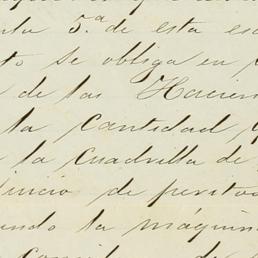 nta 5.ª de esta es
to se obliga en
de las Hacien
la cantidad
la cuadrilla de
juicio de perito
endo la máquin